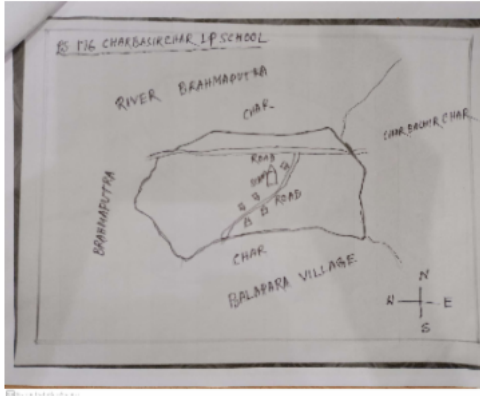 176 CHARBASIRCHAR LP SCHOOL
RIVER BRAHMAPUTRA
CHAR
CHAR
BRAHMAPUTRA
ROAD
ROAD
CHAR
BALAPARA VILLAGE
N
W E
S